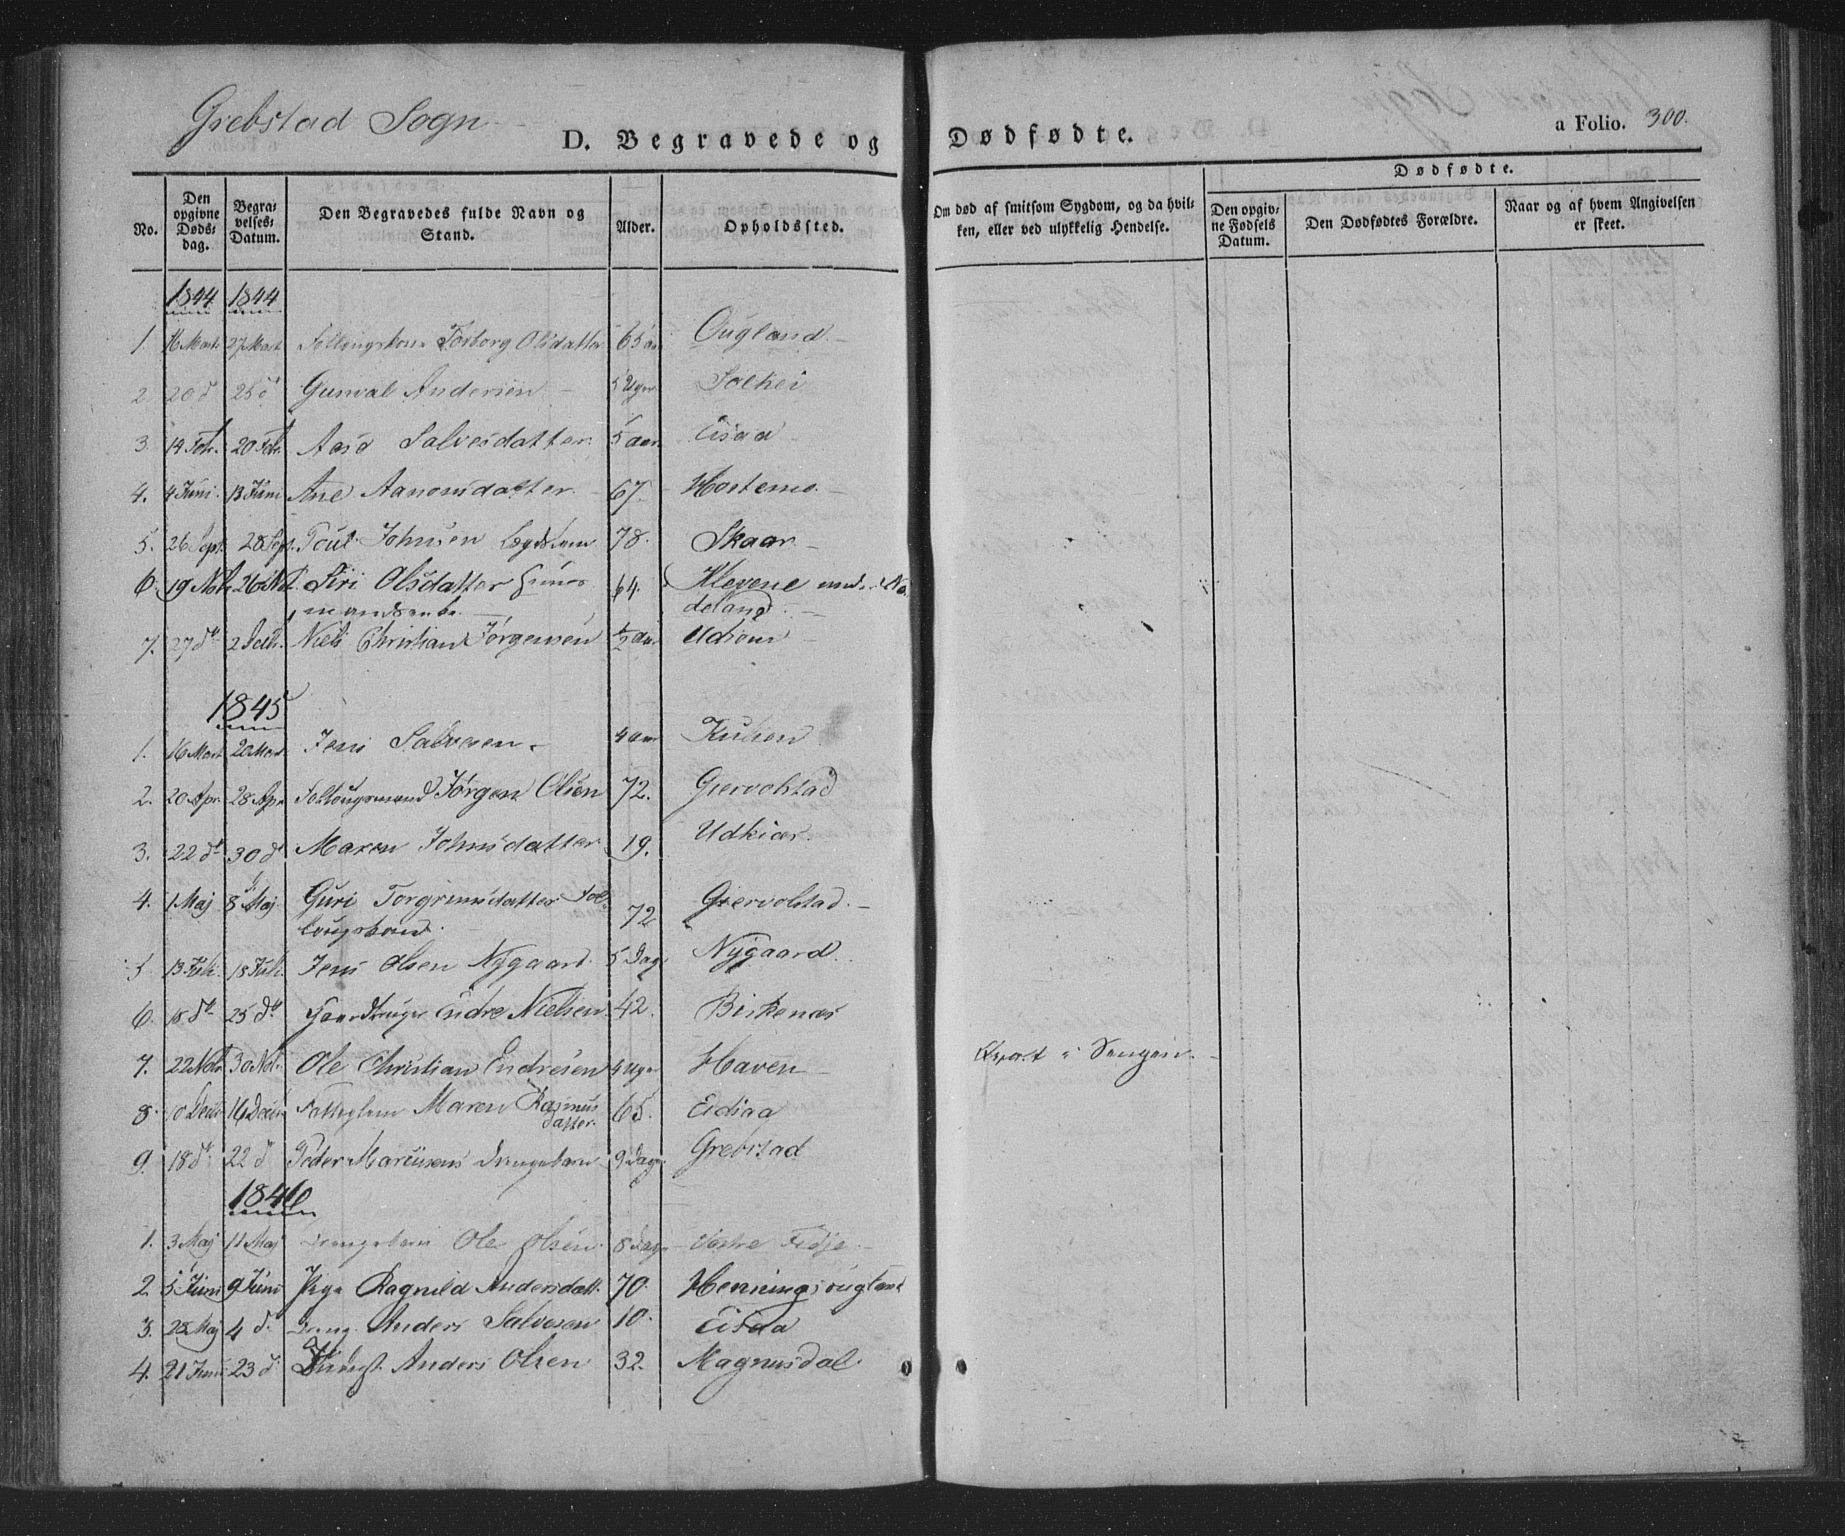 Grebstad Sogn
D. Begravede og Dødfødte.
a Folio. 300.
No.
Den opgivne Døds-dag.
Begra-velses-Datum.
Den Begravedes fulde Navn og Stand.
Alder.
Opholdssted.
Om død af smitsom Sygdom, og da hvil-ken, eller ved ulykkelig Hendelse.
Dødfødte.
Den opgiv-ne Fødsels Datum.
Den Dødfødtes Forældre.
Naar og af hvem Angivelsen er skeet.
1844 1844
1. 16 Marts 27 Marts Torborg Olsdatter 65 aar Ougland
2 20 d 25 d Gunval Andersen 5 Uger Solhei
3. 14 Febr. 20 Febr. Aaso Salvesdatter 5 aar Eisaa
4. 4 Juni 13 Juni Ane Aanonsdatter 67. Hortemo
5. 26 Sept. 28 Sept. Poul Johnsen Lægdslem 78. Skaar
6. 19 Nob. 26 Nob. Siri Olsdatter Huus- 64. Klevene und. No-
mandsenke deland
7. 27 dt 2 Decbr. Niels Christian Jørgensen 1/2 aar
1845
1. 16 Mart 20 Mart Jens Salvesen 4 aar
2. 20 Apr. 28 Apr. Føllougsmand Jørgen Olsen 72. Giervolstad
3. 22 dt 30 dt Maren Johnsdatter 19. Udkiær
4. 1 Maj 8 Maj Guri Torgrimsdatter Føl- 72 Giervolstad
lougskone
5 13 Juli 18 Juli. Jens Olsen Nygaard 5 Dag Nygaard
6. 18 dt 25 dt Gaardbruger Endre Nielsen 42. Birkenæs
7. 22 Nob 30 Nob. Ole Christian Endresen 4 Uger Haven Qvalt i Sengen
8. 10 Decbr 16 Decbr Fattiglem Maren Rasmus 65. Eidiaa
datter.
9. 18 dt 22 d Peder Marcusens Drengebarn 9 Dage Grebstad
1846
1. 3 Maj 11 Maj Drengebarn Ole Olsen 8 Dage Vestre Fidje
2 5 Juni 9 Juni Pige Ragnild Andersdatt. 70. Henningsougland
3. 28 Maj 4 d. Dreng Anders Salvesen 10. Eisaa
4. 21 Juni 23 d. Anders Olsen 32. Magnusdal